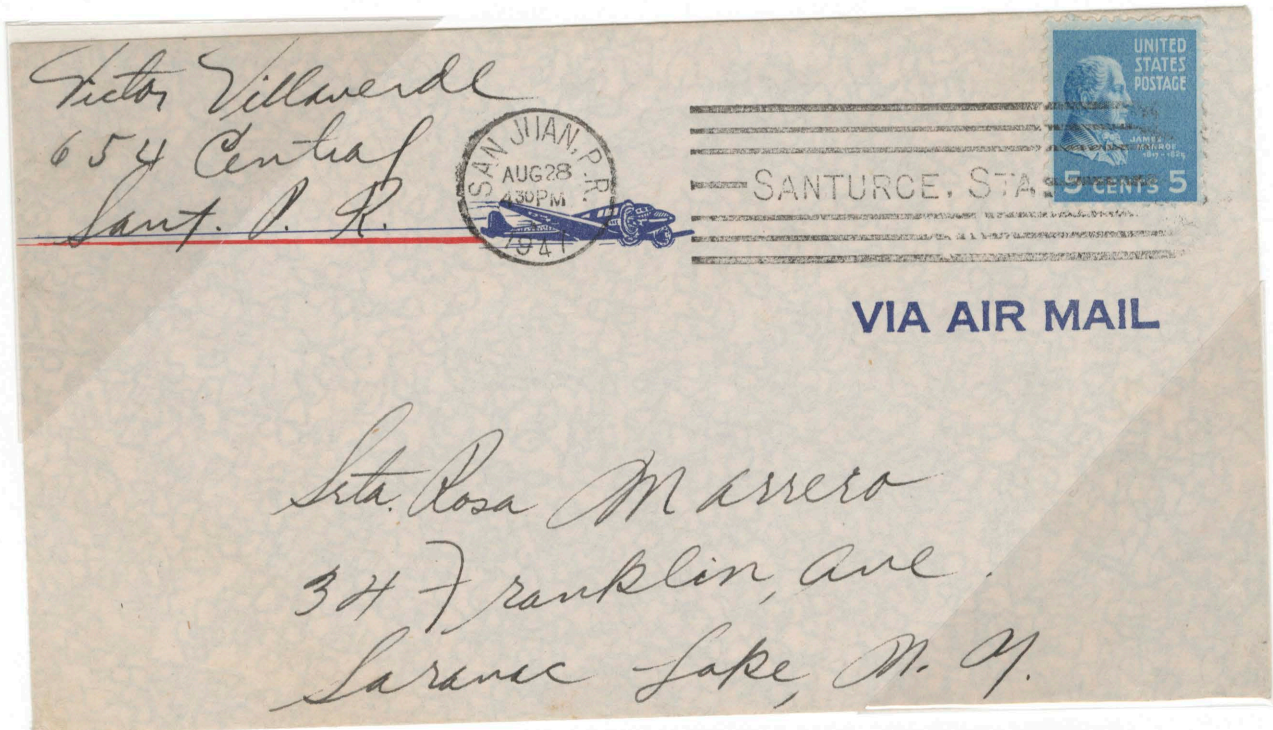 Victor Villaverde
654 Central
Sant. P. R.
SAN JUAN, P.R.
AUG 28
430 PM
1947
SANTURCE, STA.
UNITED
STATES
POSTAGE
JAMES
MONROE
1817-1825
5 CENTS 5
VIA AIR MAIL
Srta. Rosa Marrero
34 Franklin, Ave.
Saranac Lake, N. Y.